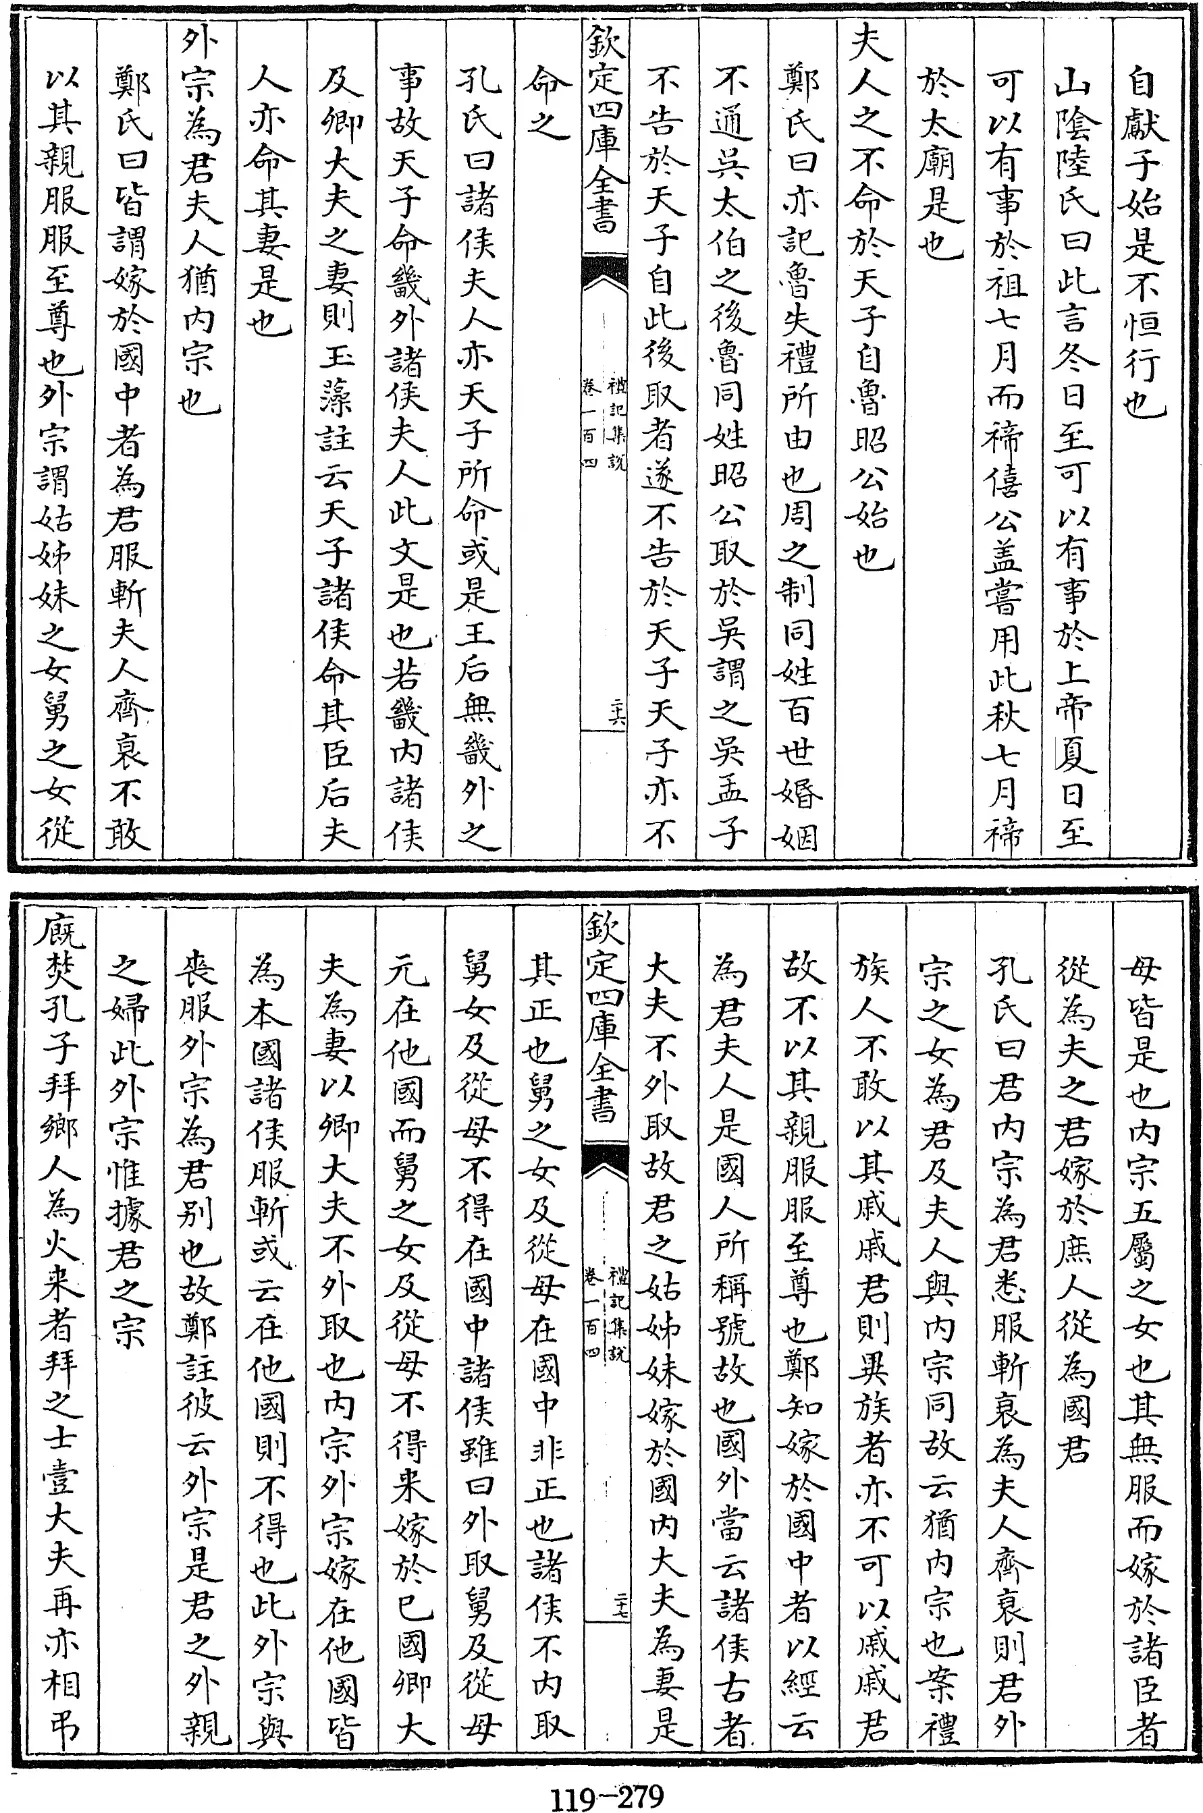 自獻子始是不恒行也
山陰陸氏曰此言冬日至可以有事於上帝夏日至
可以有事於祖七月而禘僖公盖嘗用此秋七月禘
於太廟是也
夫人之不命於天子自魯昭公始也
鄭氏曰亦記魯失禮所由也周之制同姓百世婚姻
不通吳太伯之後魯同姓昭公取於吳謂之吳孟子
不告於天子自此後取者遂不告於天子天子亦不
欽定四庫全書
禮記集說
卷一百四
二十六
命之
孔氏曰諸侯夫人亦天子所命或是王后無畿外之
事故天子命畿外諸侯夫人此文是也若畿内諸侯
及卿大夫之妻則玉藻註云天子諸侯命其臣后夫
人亦命其妻是也
外宗為君夫人猶内宗也
鄭氏曰皆謂嫁於國中者為君服斬夫人齊衰不敢
以其親服服至尊也外宗謂姑姊妹之女舅之女從
母皆是也内宗五屬之女也其無服而嫁於諸臣者
從為夫之君嫁於庶人從為國君
孔氏曰君内宗為君悉服斬衰為夫人齊衰則君外
宗之女為君及夫人與内宗同故云猶内宗也案禮
族人不敢以其戚戚君則異族者亦不可以戚戚君
故不以其親服服至尊也鄭知嫁於國中者以經云
為君夫人是國人所稱號故也國外當云諸侯古者
大夫不外取故君之姑姊妹嫁於國内大夫為妻是
欽定四庫全書
禮記集說
卷一百四
二十七
其正也舅之女及從母在國中非正也諸侯不内取
舅女及從母不得在國中諸侯雖曰外取舅及從母
元在他國而舅之女及從母不得来嫁於已國卿大
夫為妻以卿大夫不外取也内宗外宗嫁在他國皆
為本國諸侯服斬或云在他國則不得也此外宗與
喪服外宗為君别也故鄭註彼云外宗是君之外親
之婦此外宗惟據君之宗
廐焚孔子拜鄉人為火来者拜之士壹大夫再亦相弔
119-279